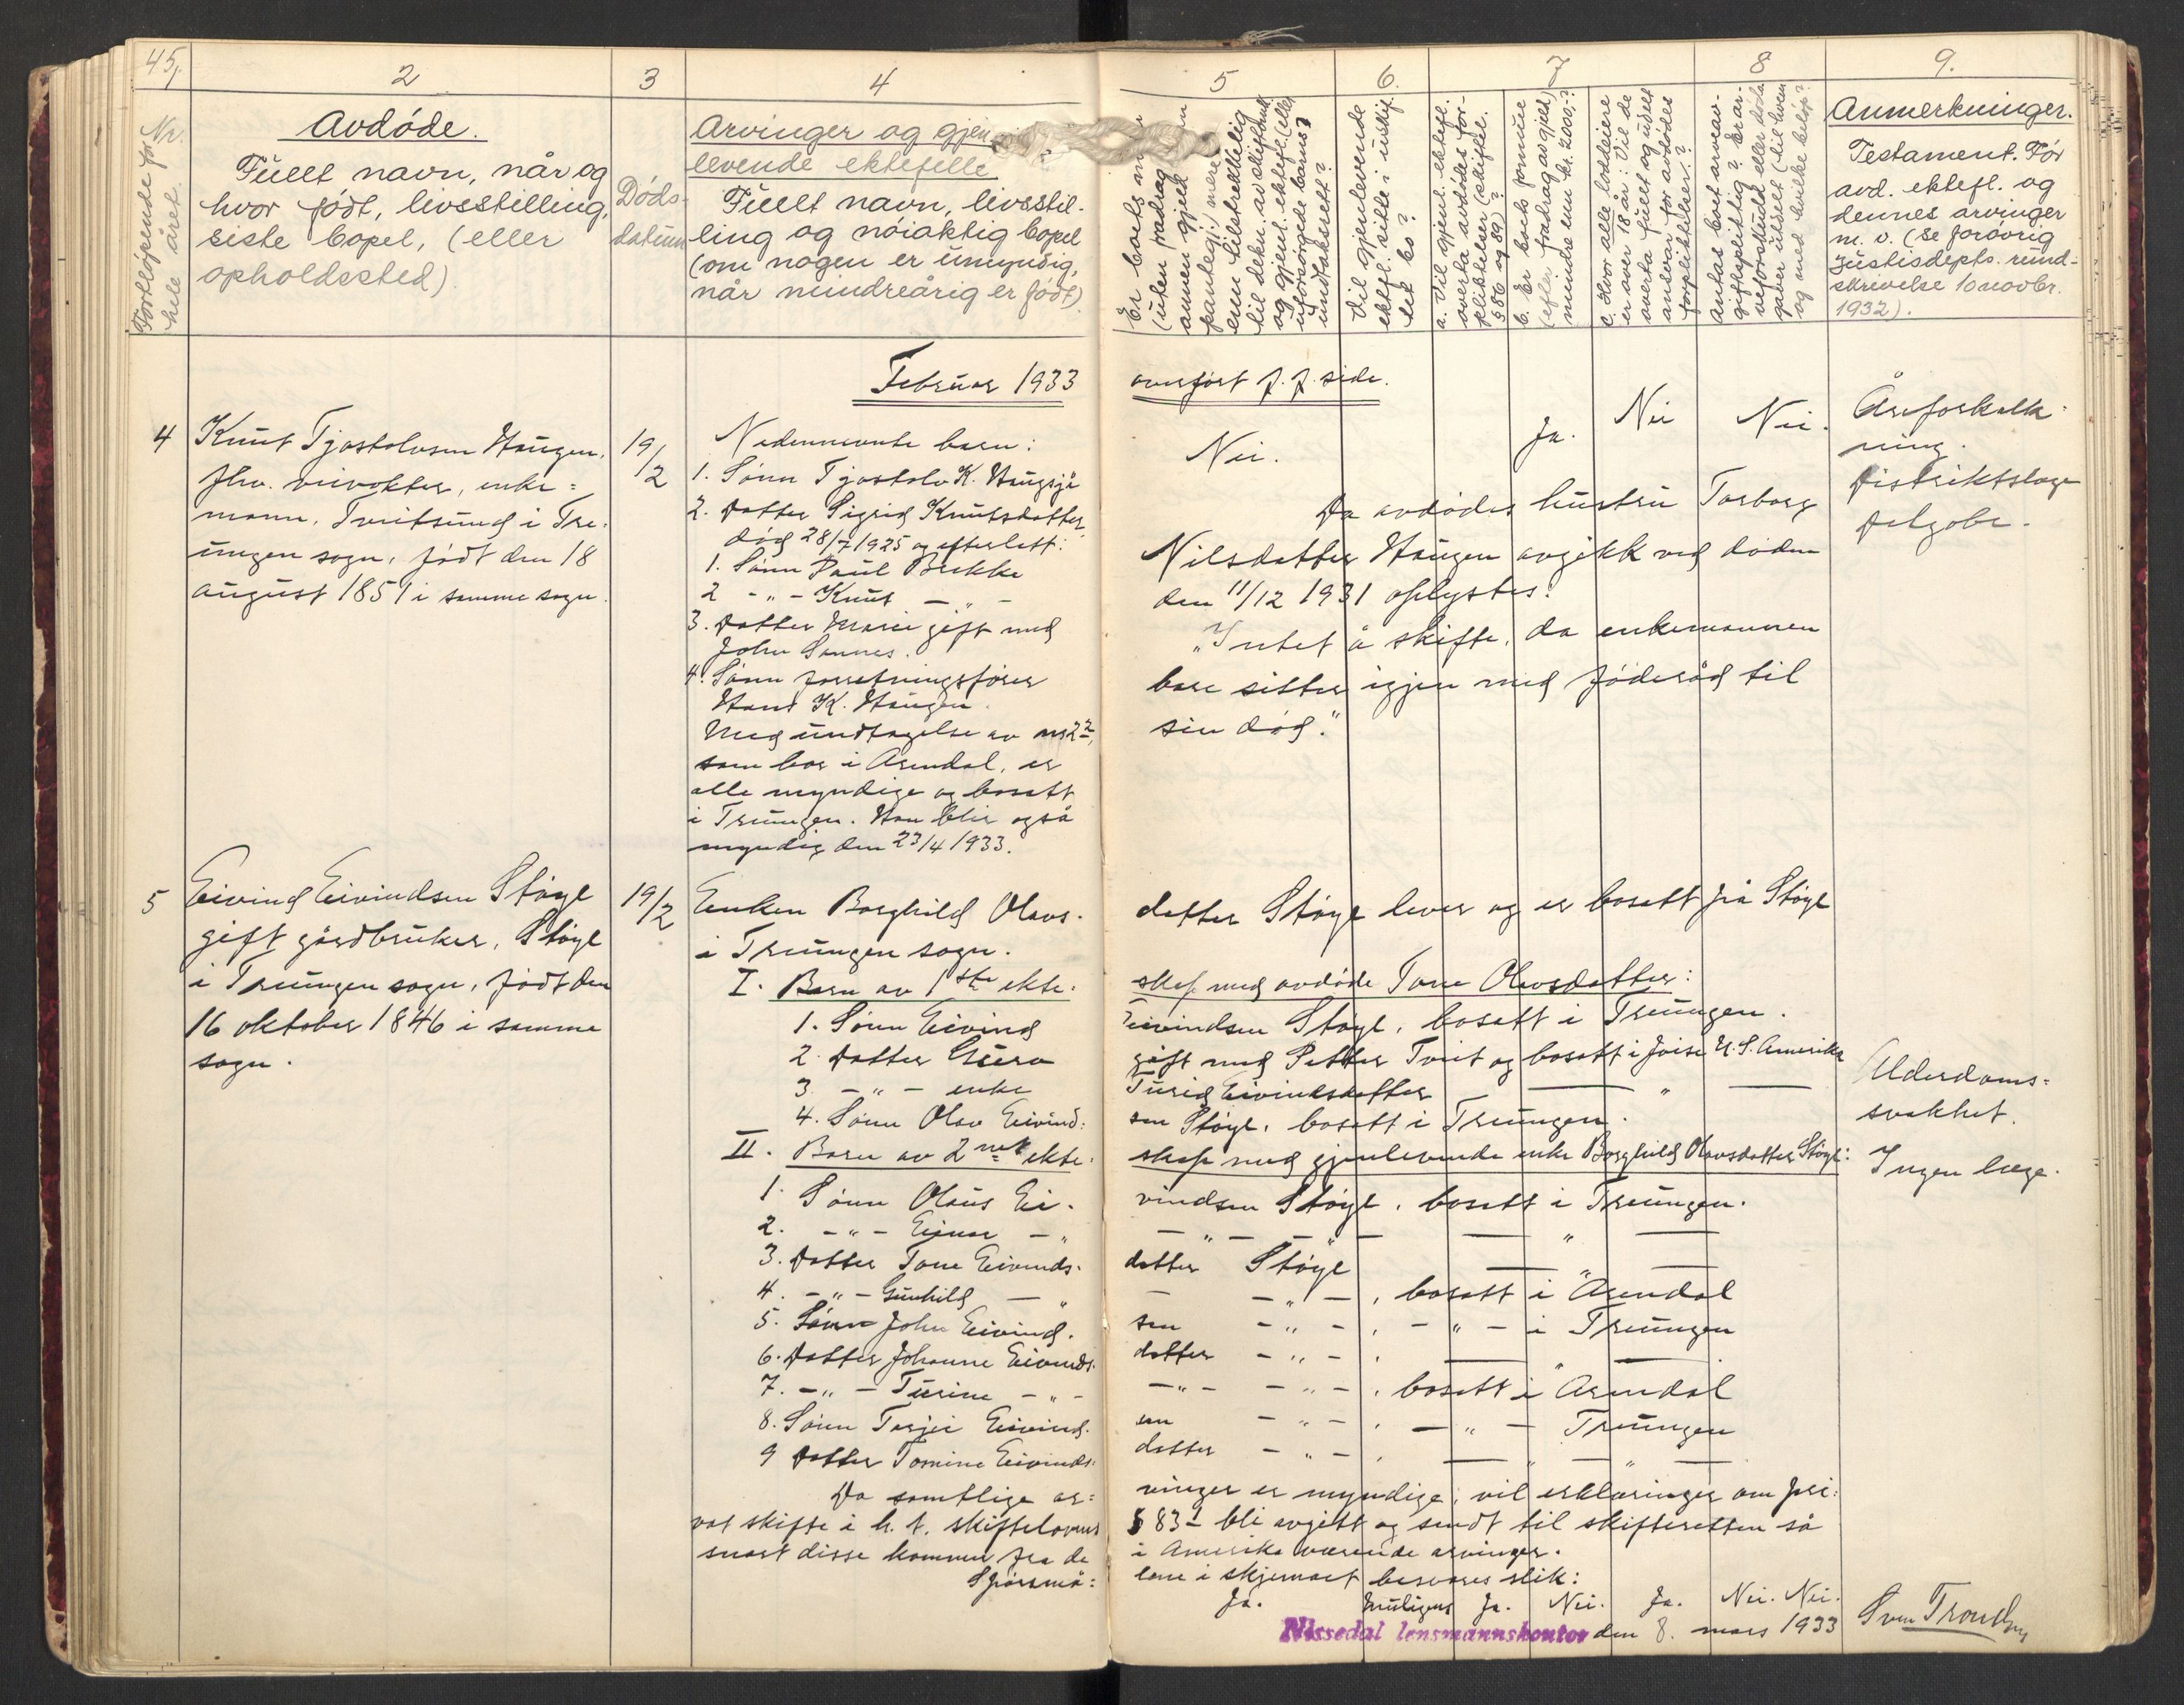 45,
2
3
4
5
6.
7
8
9.
Nr.
Fortløpende for
hele året.
Avdøde.
Fullt navn, når og
hvor født, livsstilling,
siste bopel, (eller
opholdssted)
Døds-
datum
Arvinger og gjen-
levende ektefelle
Fullt navn, livsstil-
ling og nøiaktig bopel
(om nogen er umyndig,
når mindreårig er født)
Er boets
(uten fradrag
annen gjeld
pantelegj.) mere
enn tilstrekkelig
til dekn. av skiftomk.
og gjenl. ektef. (eller
uforsørgede barns)
undtaksrett?
Vil gjenlevende
ektef. sitte i uskif-
tet bo?
a. Vil gjenl. ektefl.
overta avdødes for-
pliktelser (skiftel.
§ 86 og 89)?
b. Er boets formue
(efter fradrag av gjeld)
mindre enn kr. 200,-?
c. Hvor alle loddeiere
er over 18 år: Vil de
overta fullt og udelt
ansvar for avdødes
forpliktelser?
Antas boet arveav-
giftspliktig? Er ar-
veforskudd eller døds-
gaver utdelt (til hvem
og med hvilke beløp?
Anmerkninger.
Testament. Før
avd. ektefl. og
dennes arvinger
m. v. (Se forøvrig
Justisdepts. rund-
skrivelse 10 novbr.
1932).
Februar 1933
overført f. f. side.
4
Knut Tjostolvsen Haugen,
fhv. veivokter, enke=
mann, Tveitsund i Tre-
ungen sogn, født den 18
august 1851 i samme sogn.
19/2
Nedennevnte barn:
1. Sønn Tjostolv K. Haugsjå
2. Datter Sigrid Knutsdatter,
død 28/7 1925 og efterlatt:
1. Sønn Paul Brekke
2 -"- Knut -"-
3. Datter Marie gift med
John Sannes.
4. Sønn forretningsfører
Hans K. Haugen.
Med undtagelse av nr 2 2,
som bor i Arendal, er
alle myndige og bosatt
i Treungen. Han blir også
myndig den 23/4 1933.
Nei.
Ja.
Nei
Nei.
Da avdødes hustru Torborg
Nilsdatter Haugen avgikk ved døden
den 11/12 1931 oplystes:
"Intet å skifte, da enkemannen
bare sitter igjen med føderåd til
sin død."
Åreforkalk-
ning.
Distriktslæge
Delgobe.
5
Eivind Eivindsen Støyl
gift gårdbruker, Støyl
i Treungen sogn, født den
16 oktober 1846 i samme
sogn.
19/2
Enken Borghild Olavs-
datter Støyl lever og er bosatt på Støyl
i Treungen sogn.
I. Barn av 1ste ekte-
skap med avdøde Tone Olavsdatter:
1. Sønn Eivind
Eivindsen Støyl, bosatt i Treungen.
2. Datter Guro
gift med Petter Tveit og bosatt i U. S. Amerika
3. -"- enke
Turid Eivindsdatter — " —
4. Sønn Olav Eivind-
sen Støyl, bosatt i Treungen.
II. Barn av 2net ekte-
skap med gjenlevende enke Borghild Olavsdatter Støyl:
1. Sønn Olaus Ei-
vindsen Støyl, bosatt i Treungen.
2. -"- Einar -"
— " — " — — " —
3. Datter Tone Eivinds-
datter Støyl — " —
4. -"- Gunhild — "
— - " -, bosatt i Arendal
5. Sønn John Eivind-
sen - " -, - " - i Treungen
6. Datter Johanne Eivinds-
datter - " -, — " —
7. -"- Turine -"-
-"- - " -, bosatt i Arendal
8. Sønn Terjei Eivind-
sen - " -, — " — Treungen
9 Datter Tomine Eivinds-
datter - " -, — " — " —
Da samtlige ar=
vinger er myndige, vil erklæringer om pri-
vat skifte i h. t. skiftelovens
§ 83 1 bli avgitt og sendt til skifteretten så
snart disse kommer fra de
i Amerika værende arvinger.
Spørsmå=
lene i skjemaet besvares slik:
Ja.
Muligens
Ja.
Nei.
Ja.
Nei. Nei.
Alderdoms=
svakhet.
Ingen læge.
Nissedal lensmannskontor den 8. mars 1933